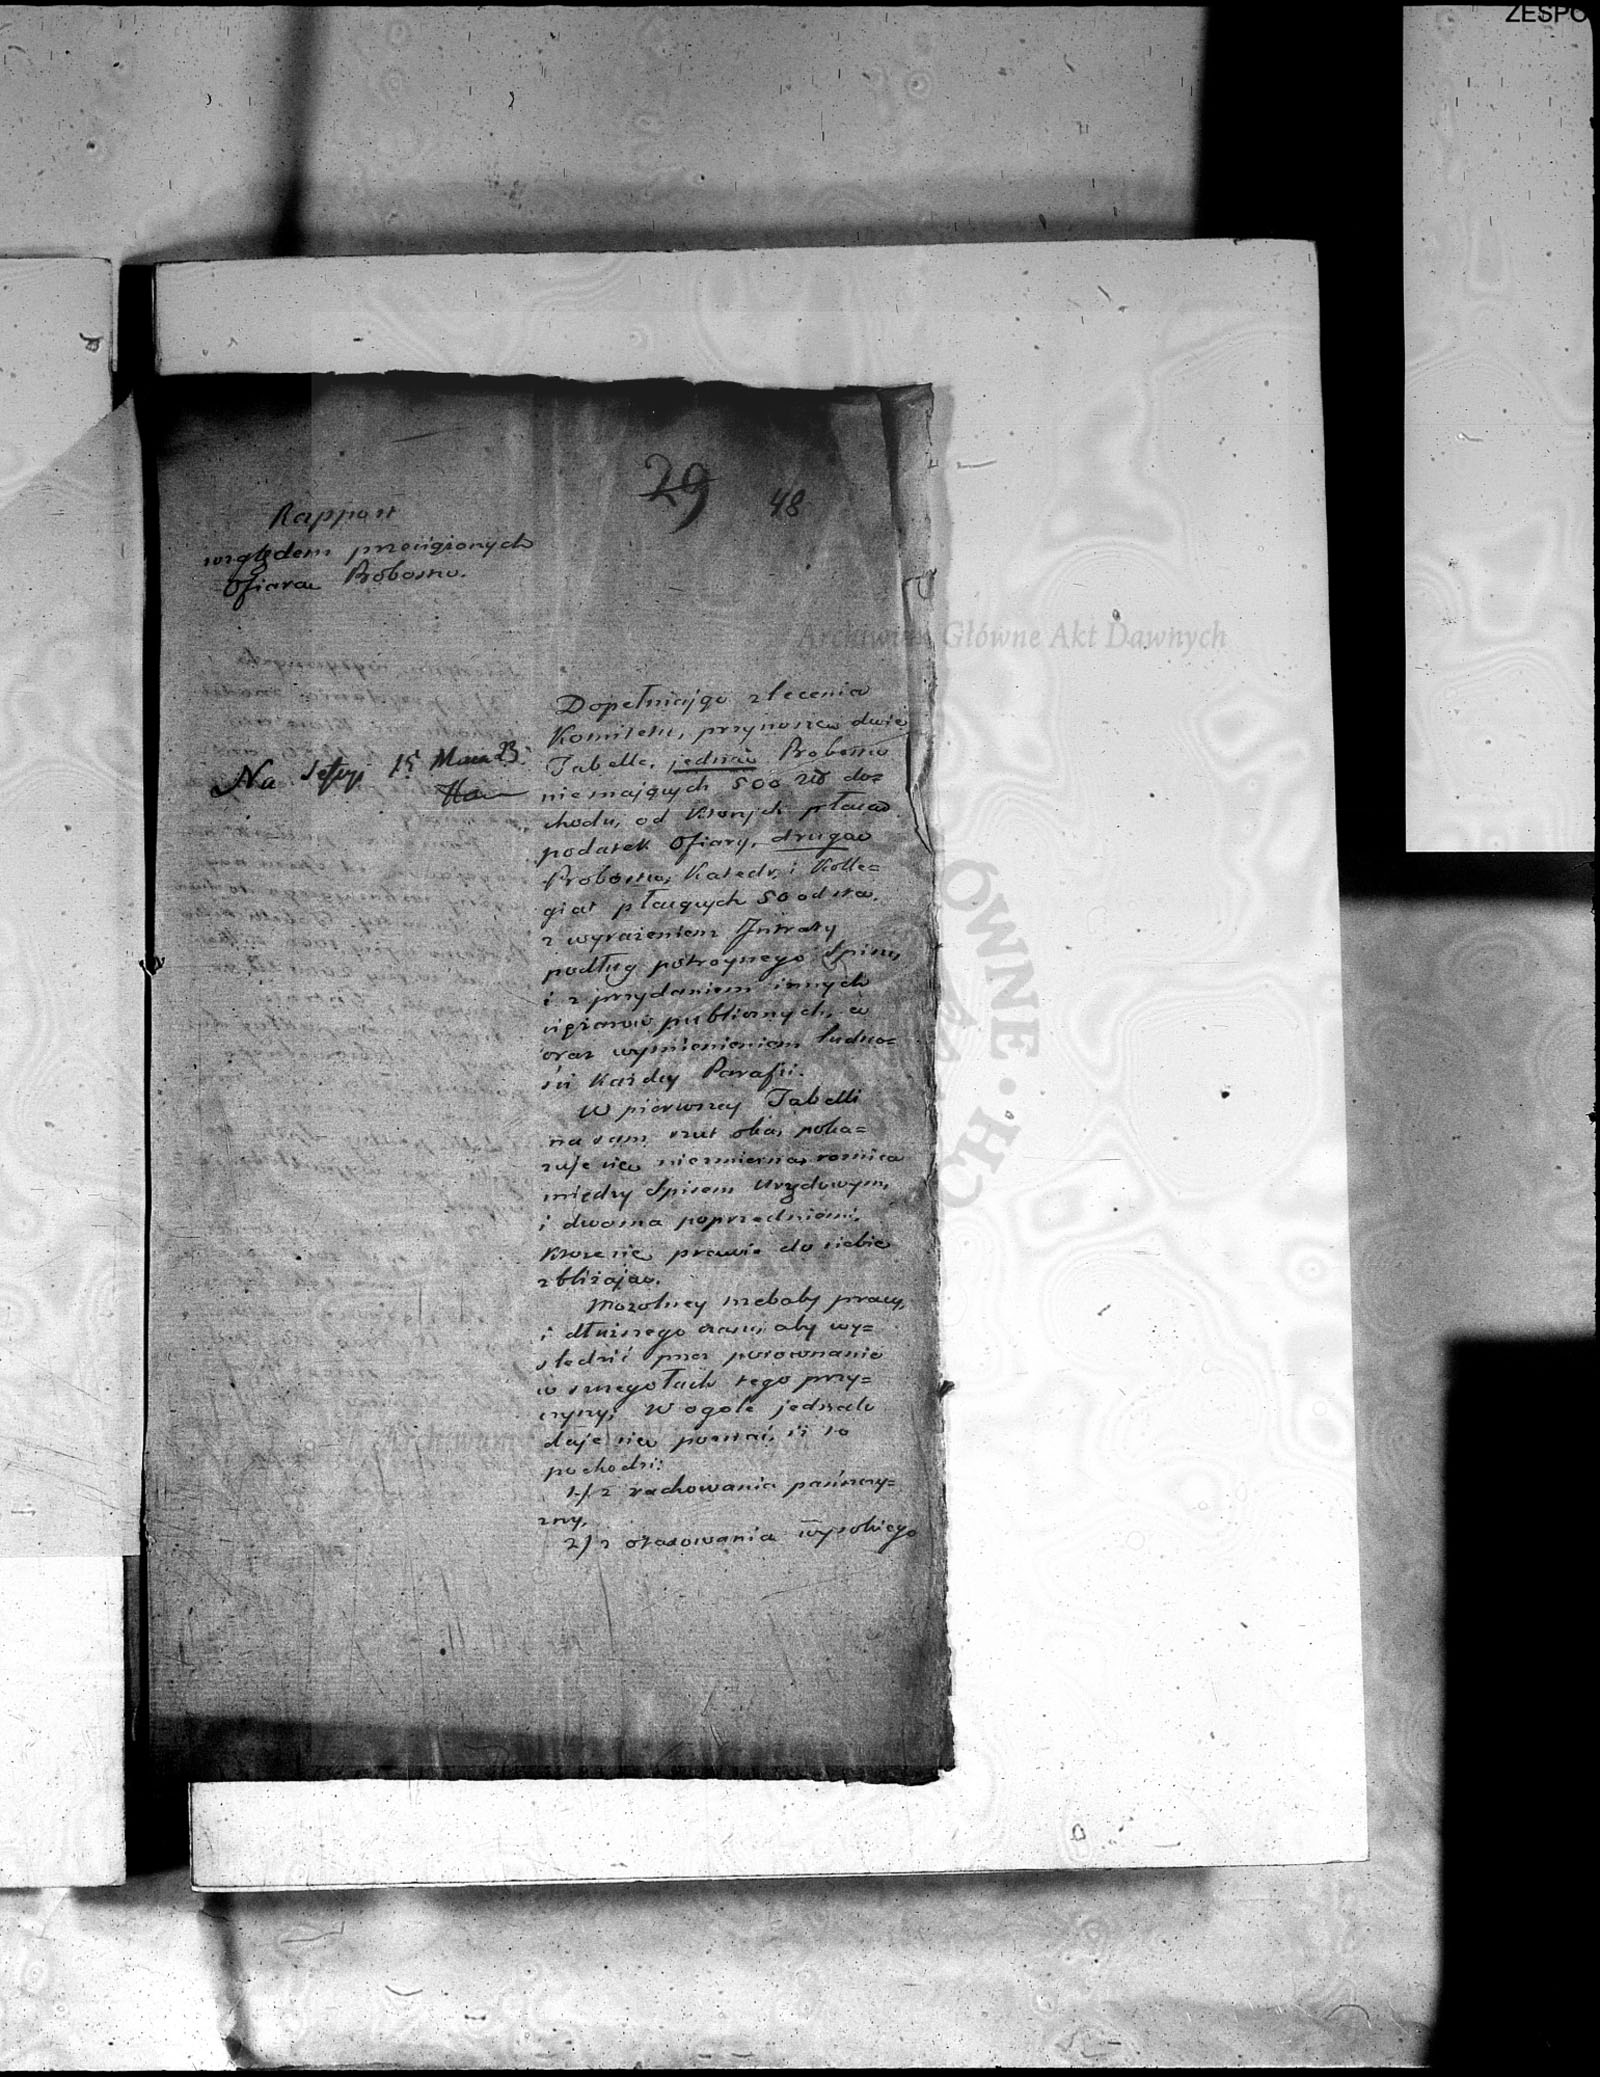 ZESPO
29 48
Rapport
względem przeciążonych
Ofiarą Probostw.
Na Sessyi 15 Marca 23.
Archiwum Główne Akt Dawnych
Dopełniając zlecenia
Komitetu, przynoszę dwie
Tabelle, jedną Probostw
niemających 500 Zł do=
chodu, od których płacą
podatek Ofiary, drugą
Probostw, Katedr, i Kolle=
giat płacących 50 od sta,
z wyrażeniem Intraty
podług potroynego Spisu,
i z przydaniem innych
ciężarów publicznych, a
oraz wymienieniem ludno=
ści każdey Parafii.
W pierwszey Tabelli
na sam rzut oka, poka=
zuje się niezmierna roznica
między Spisem Urzędowym,
i dwoma poprzedniemi,
ktore się prawie do siebie
zbliżają.
Mozolney trzebaby pracy,
i dłuższego czasu, aby wy=
śledzić przez porownanie
w szczegołach tego przy=
czyny; W ogole jednak
daje się poznać, iż to
pochodzi:
1./ z rachowania pańszczy=
zny,
2/ z otaxowania wysokiego